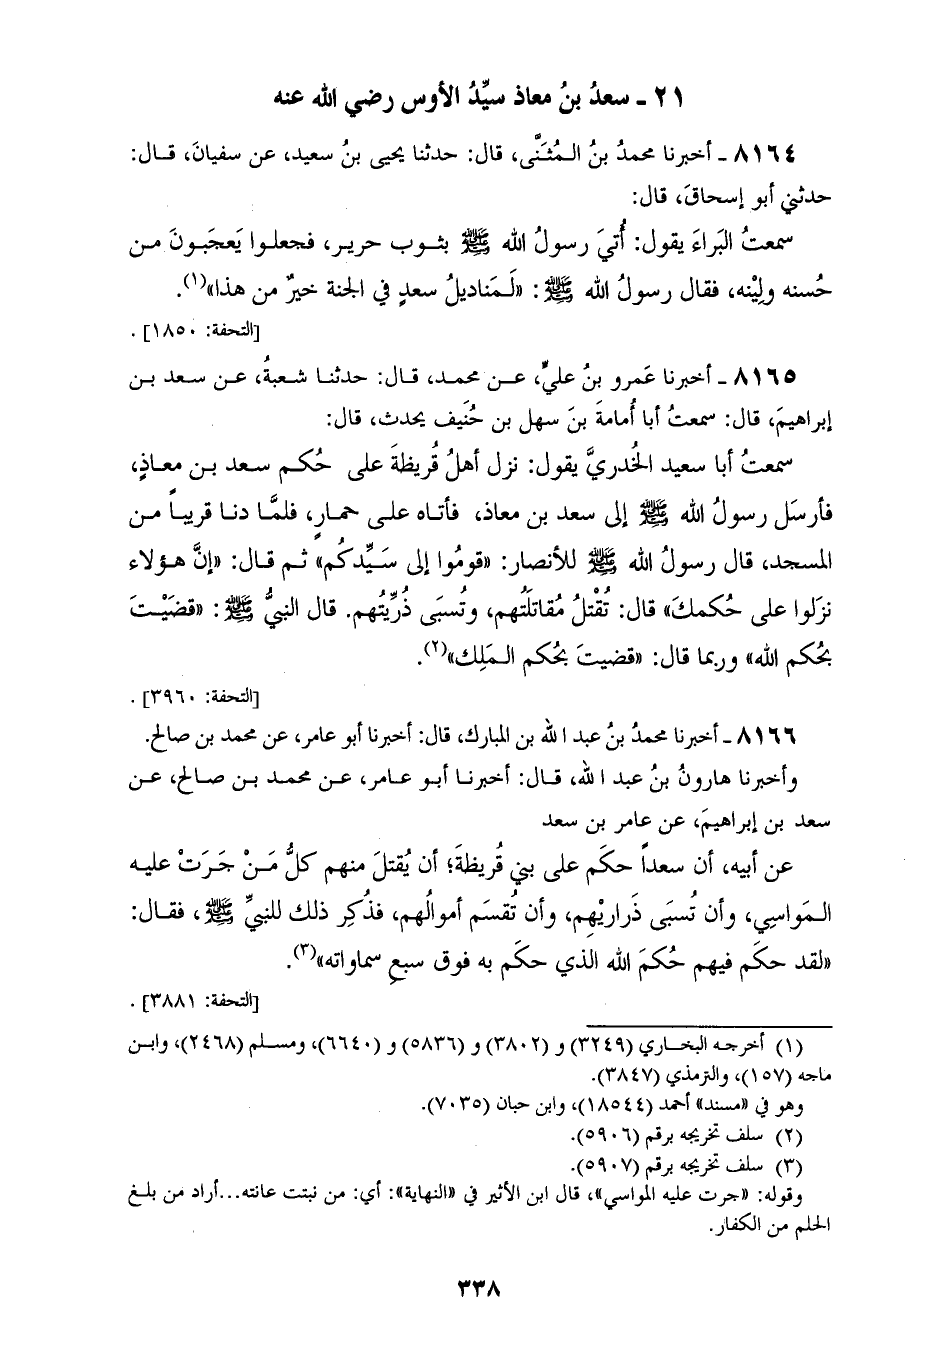 ٢١ ـ سعدُ بنُ معاذ سيِّدُ الأوس رضي الله عنه
٨١٦٤ ـ أخبرنا محمدُ بنُ المُثنَّى، قال: حدثنا يحيى بنُ سعيد، عن سفيانَ، قال:
حدثني أبو إسحاقَ، قال:
سمعتُ البَراءَ يقول: أُتيَ رسولُ الله ﷺ بثوب حرير، فجعلوا يَعجَبونَ من
حُسنه ولِيْنه، فقال رسولُ الله ﷺ: «لَمَناديلُ سعدٍ في الجنة خيرٌ من هذا»(١).
[التحفة: ١٨٥٠] .
٨١٦٥ ـ أخبرنا عَمرو بنُ عليٍّ، عن محمد، قال: حدثنا شعبةُ، عن سعد بن
إبراهيمَ، قال: سمعتُ أبا أُمامةَ بنَ سهل بن حُنَيف يحدث، قال:
سمعتُ أبا سعيد الخُدريَّ يقول: نزل أهلُ قُريظةَ على حُكم سعد بن معاذٍ،
فأرسَل رسولُ الله ﷺ إلى سعد بن معاذ، فأتاه على حمارٍ، فلمَّا دنا قريباً من
المسجد، قال رسولُ الله ﷺ للأنصار: «قومُوا إلى سَيِّدكُم» ثم قال: «إنَّ هؤلاء
نزَلوا على حُكمكَ» قال: تُقْتلُ مُقاتلَتُهم، وتُسبَى ذُرِّيتُهم. قال النبيُّ ﷺ: «قضَيْتَ
بحُكم الله» وربما قال: «قضيتَ بحُكم المَلِك»(٢).
[التحفة: ٣٩٦٠] .
٨١٦٦ ـ أخبرنا محمدُ بنُ عبد الله بن المبارك، قال: أخبرنا أبو عامر، عن محمد بن صالح.
وأخبرنا هارونُ بنُ عبد الله، قال: أخبرنا أبو عامر، عن محمد بن صالح، عن
سعد بن إبراهيمَ، عن عامر بن سعد
عن أبيه، أن سعداً حكَم على بني قُريظةَ؛ أن يُقتلَ منهم كلُّ مَنْ جَرَتْ عليه
المَواسِي، وأن تُسبَى ذَراريْهِم، وأن تُقسَم أموالُهم، فذُكِر ذلك للنبيِّ ﷺ، فقال:
«لقد حكَم فيهم حُكمَ الله الذي حكَم به فوق سبعِ سماواته»(٣).
[التحفة: ٣٨٨١] .
(١) أخرجه البخاري (٣٢٤٩) و (٣٨٠٢) و (٥٨٣٦) و (٦٦٤٠)، ومسلم (٢٤٦٨)، وابن
ماجه (١٥٧)، والترمذي (٣٨٤٧).
وهو في «مسند» أحمد (١٨٥٤٤)، وابن حبان (٧٠٣٥).
(٢) سلف تخريجه برقم (٥٩٠٦).
(٣) سلف تخريجه برقم (٥٩٠٧).
وقوله: «جرت عليه المواسي»، قال ابن الأثير في «النهاية»: أي: من نبتت عانته...أراد من بلغ
الحلم من الكفار.
٣٣٨